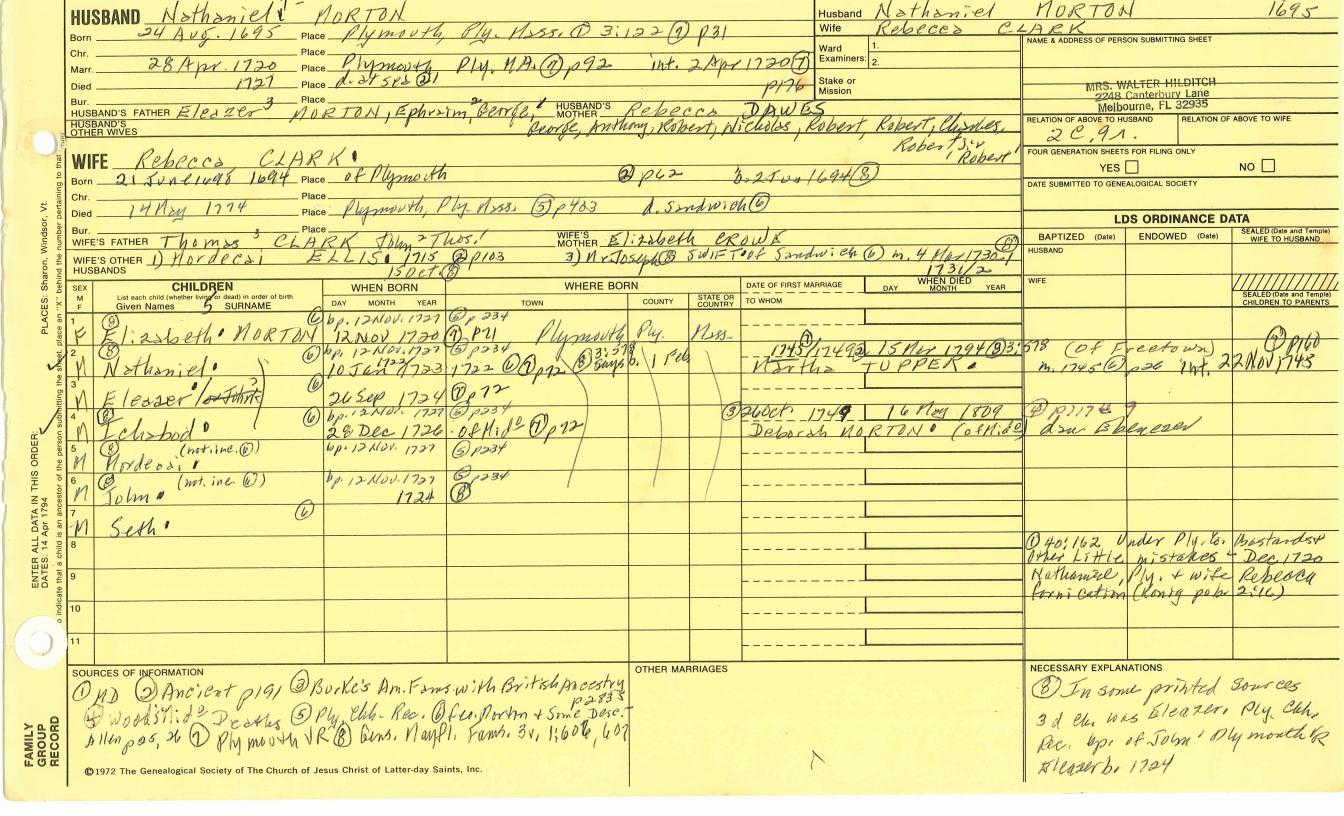 HUSBAND Nathaniel MORTON
Born 24 Aug. 1695 Place Plymouth, Ply. Mass. ① 3:122 ⑦ p31
Chr. Place
Marr. 28 Apr. 1720 Place Plymouth Ply. MA. ⑦ p92 int. 2 Apr 1720 ⑦ p176
Died 1727 Place d. at sea
Bur. Place
HUSBAND'S FATHER Eleazer³ MORTON, Ephraim,² George¹ HUSBAND'S MOTHER Rebecca DAWES
HUSBAND'S OTHER WIVES George, Anthony, Robert, Nicholas, Robert, Robert, Charles,
Robert Sir Robert
Husband Nathaniel MORTON 1695
Wife Rebecca CLARK
Ward Examiners: 1.
2.
Stake or Mission
NAME & ADDRESS OF PERSON SUBMITTING SHEET
MRS. WALTER HILDITCH
2248 Canterbury Lane
Melbourne, FL 32935
RELATION OF ABOVE TO HUSBAND RELATION OF ABOVE TO WIFE
2C,9r.
FOUR GENERATION SHEETS FOR FILING ONLY
YES NO
DATE SUBMITTED TO GENEALOGICAL SOCIETY
WIFE Rebecca CLARK
Born 21 June 1698 1694 Place of Plymouth ② p62 b. 2 Jun 1694 ⑧
Chr. Place
Died 14 May 1774 Place Plymouth, Ply. Mass. ⑤ p403 d. Sandwich ⑥
Bur. Place
WIFE'S FATHER Thomas³ CLARK John² Thos.¹ WIFE'S MOTHER Elizabeth CROWE
WIFE'S OTHER HUSBANDS 1) Mordecai ELLIS 1715 ② p103 3) Mr. Joseph SWIFT of Sandwich ⑥ m. 4 Mar 1730
15 Oct. ⑧ 1731/2
LDS ORDINANCE DATA
BAPTIZED (Date) ENDOWED (Date) SEALED (Date and Temple) WIFE TO HUSBAND
HUSBAND
WIFE
SEALED (Date and Temple) CHILDREN TO PARENTS
SEX M F CHILDREN WHEN BORN WHERE BORN DATE OF FIRST MARRIAGE WHEN DIED
List each child (whether living or dead) in order of birth
Given Names SURNAME DAY MONTH YEAR TOWN COUNTY STATE OR COUNTRY TO WHOM DAY MONTH YEAR
1 ⑥ bp. 12 Nov. 1727 ⑤ p234
F Elizabeth MORTON 12 Nov 1720 ⑦ p71 Plymouth Ply. Mass.
2 ⑧ ⑥ bp. 12 Nov. 1727 ⑤ p234 1745/1749 15 Mar 1794 3:578 (of Freetown) p160
M Nathaniel 10 Jan 1722/1723 1722 ⑥ ⑦ p72 ⑧ 3:578 says b. 1 Feb Martha TUPPER m. 1745 ⑥ p26 int. 22 Nov 1745
3 ⑥
M Eleazer/or John? 26 Sep 1724 ⑦ p72
4 ⑧ ⑥ bp. 12 Nov. 1727 ⑤ p234 ③ 26 Oct. 1749 16 May 1809
M Ichabod 28 Dec 1726 of Midº ⑦ p72 Deborah MORTON (of Midº) dau Ebenezer
5 ⑧ (not. inc. ⑥) bp. 12 Nov. 1727 ⑤ p234
M Mordecai
6 ⑧ (not. inc ⑥) bp. 12 Nov. 1727 ⑤ p234
M John 1724 ⑧
7 ⑥
M Seth
8
9
10
11
① 40:162 Under Ply. Co. Bastards +
Other Little mistakes - Dec. 1720
Nathaniel, Ply. + wife Rebecca
fornication (Konig pub. 2:16)
SOURCES OF INFORMATION
① MD ② Ancient p191 ③ Burke's Am. Fams. with British Ancestry p2835
④ Wood's Midº Deaths ⑤ Ply. Chh. Rec. ⑥ Geo. Morton + Some Desc. -
Allen p25, 26 ⑦ Plymouth VR ⑧ Gens. Mayfl. Fams. 3v, 1:606, 607
OTHER MARRIAGES
NECESSARY EXPLANATIONS
⑧ In some printed sources
3d ch. was Eleazer. Ply. Chh.
Rec. bp. of John. Plymouth VR
Eleazer b. 1724
©1972 The Genealogical Society of The Church of Jesus Christ of Latter-day Saints, Inc.
FAMILY GROUP RECORD
ENTER ALL DATA IN THIS ORDER:
DATES: 14 Apr 1794
PLACES: Sharon, Windsor, Vt.
to indicate that a child is an ancestor of the person submitting the sheet, place an "X" behind the number pertaining to that